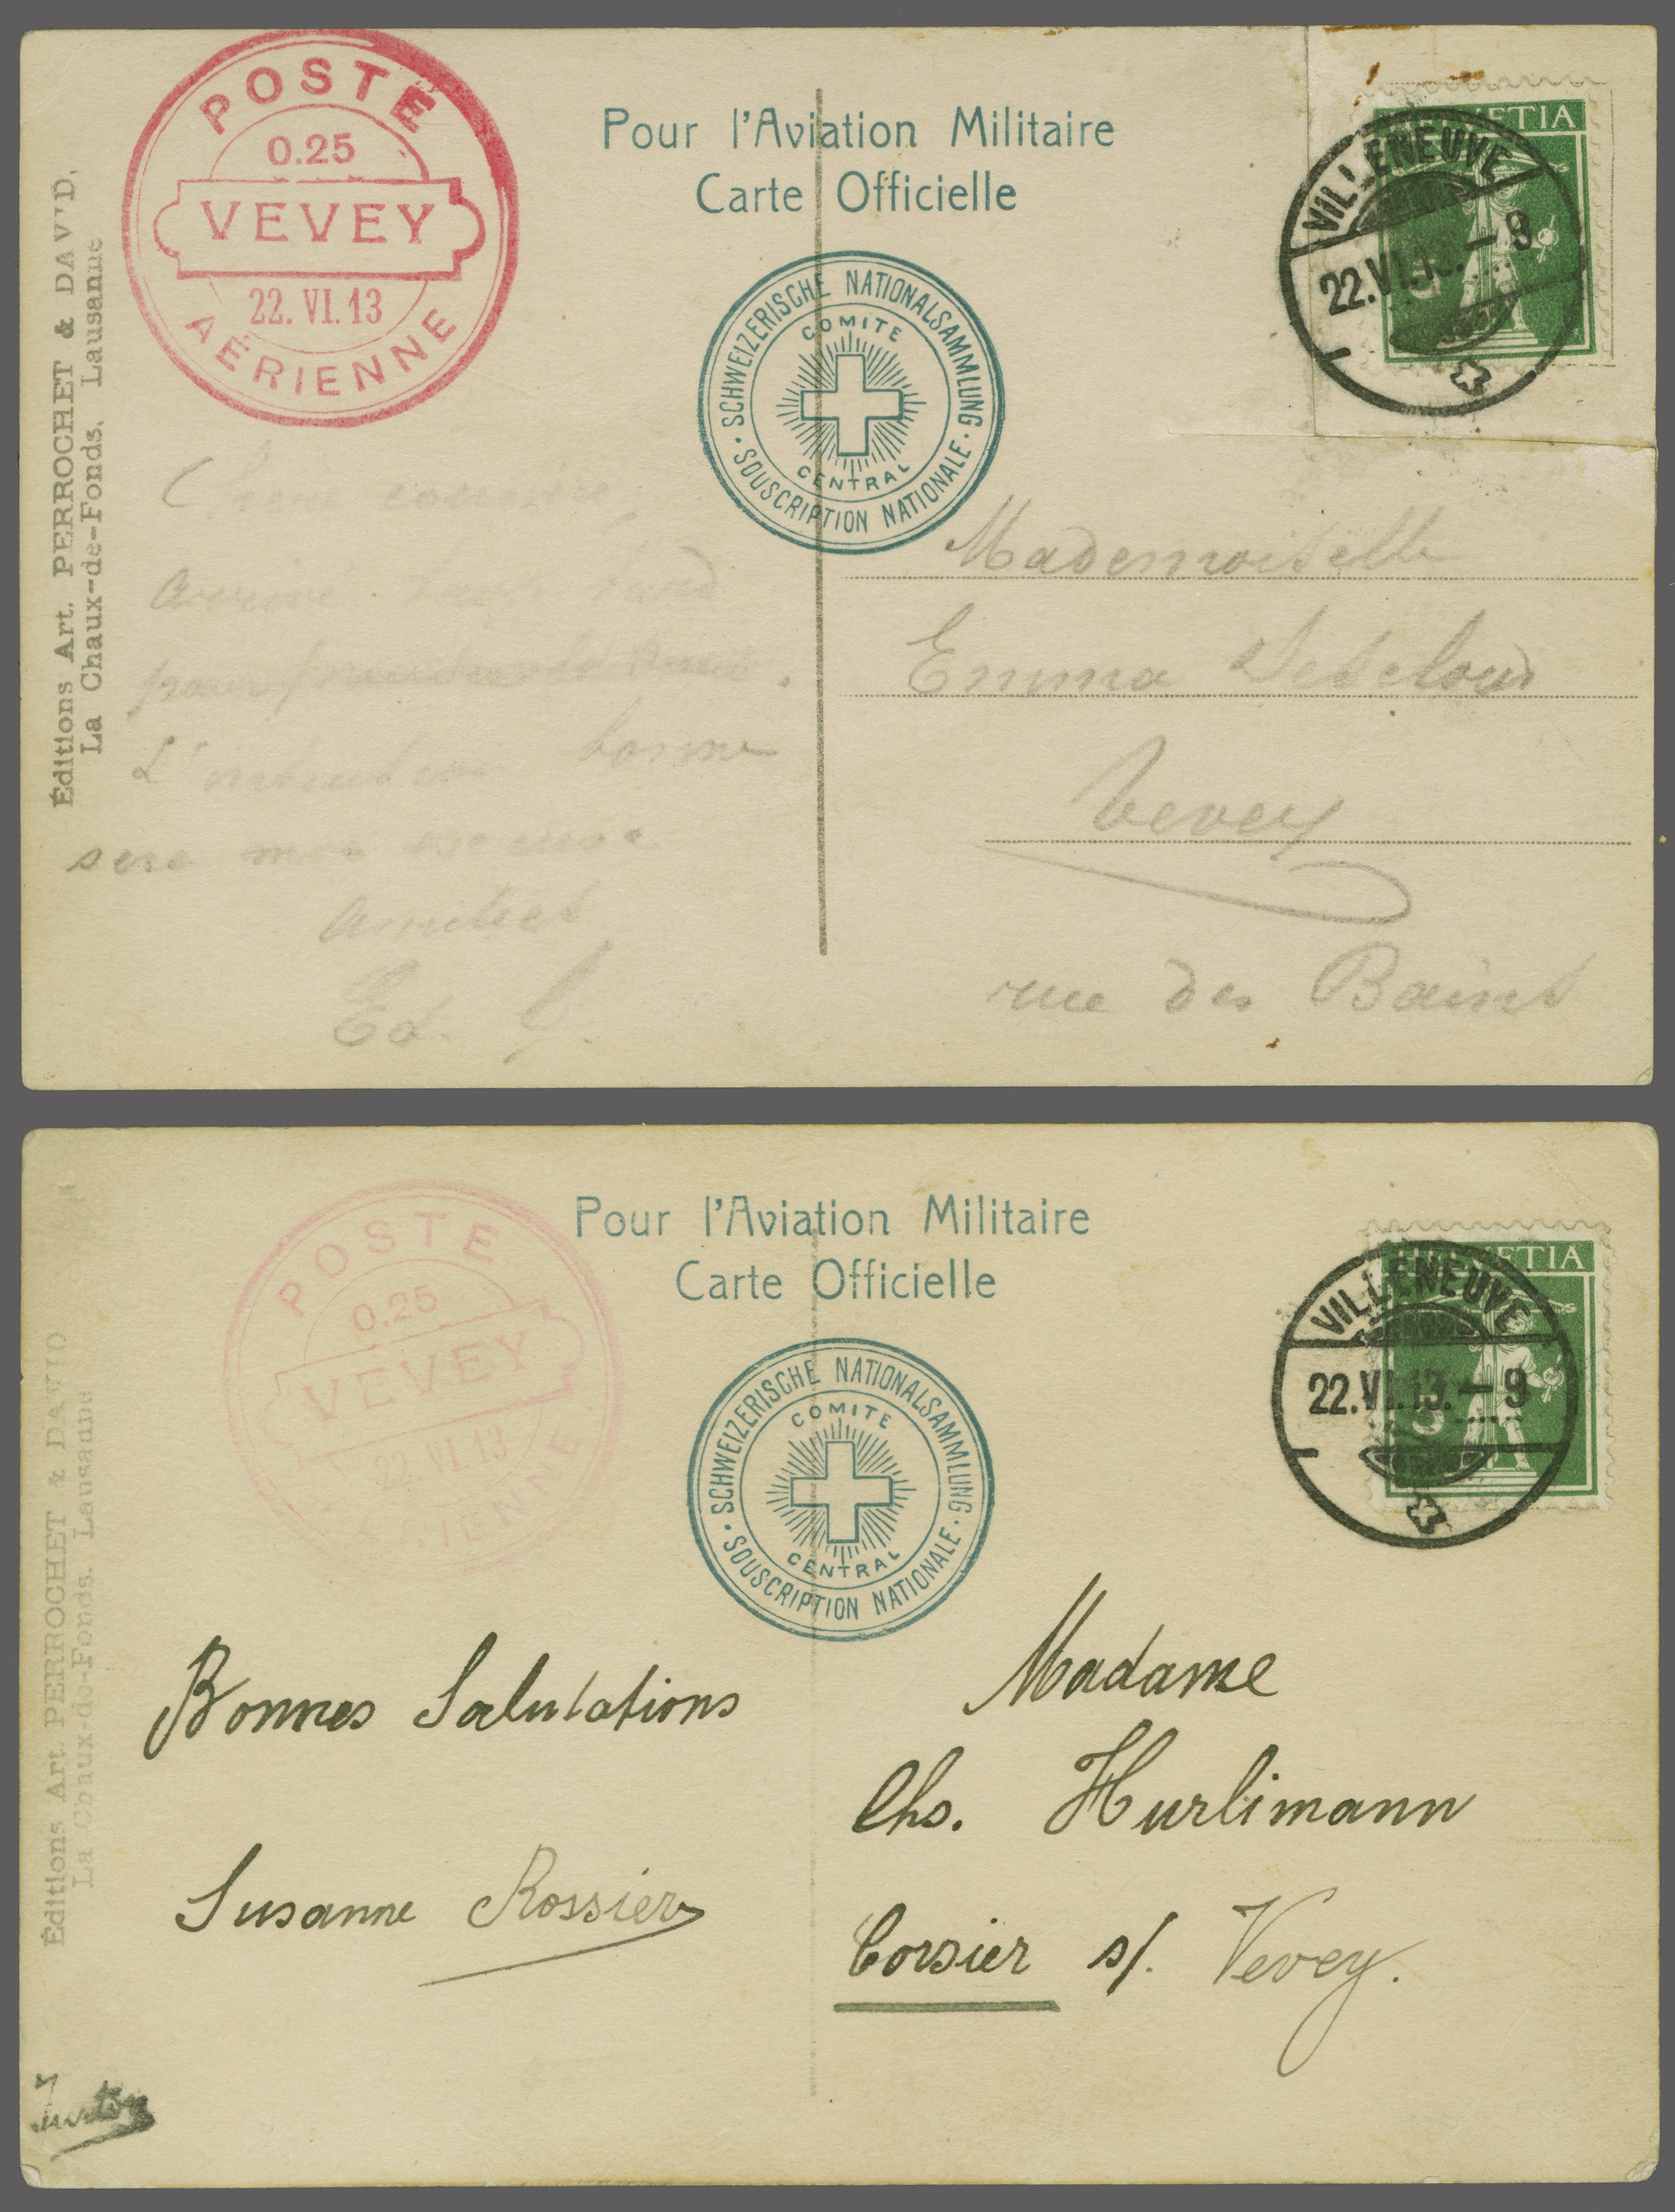 POSTE
0.25
VEVEY
22. VI. 13
AÉRIENNE
Pour l'Aviation Militaire
Carte Officielle
SCHWEIZERISCHE NATIONALSAMMLUNG
SOUSCRIPTION NATIONALE
COMITE
CENTRAL
HELVETIA
VILLENEUVE
22.VI.13. – 9
Éditions Art. PERROCHET & DAVID,
La Chaux-de-Fonds, Lausanne
L'intention bonne
sera mon excuse.
Amitiés
Ed.
Mademoiselle
Emma
Vevey
rue des Bains
POSTE
0.25
VEVEY
22. VI. 13
AÉRIENNE
Pour l'Aviation Militaire
Carte Officielle
SCHWEIZERISCHE NATIONALSAMMLUNG
SOUSCRIPTION NATIONALE
COMITE
CENTRAL
HELVETIA
5
VILLENEUVE
22.VI.13. – 9
Éditions Art. PERROCHET & DAVID
La Chaux-de-Fonds, Lausanne
Bonnes Salutations
Susanne Rossier
Madame
Chs. Hurlimann
Corsier s/. Vevey.